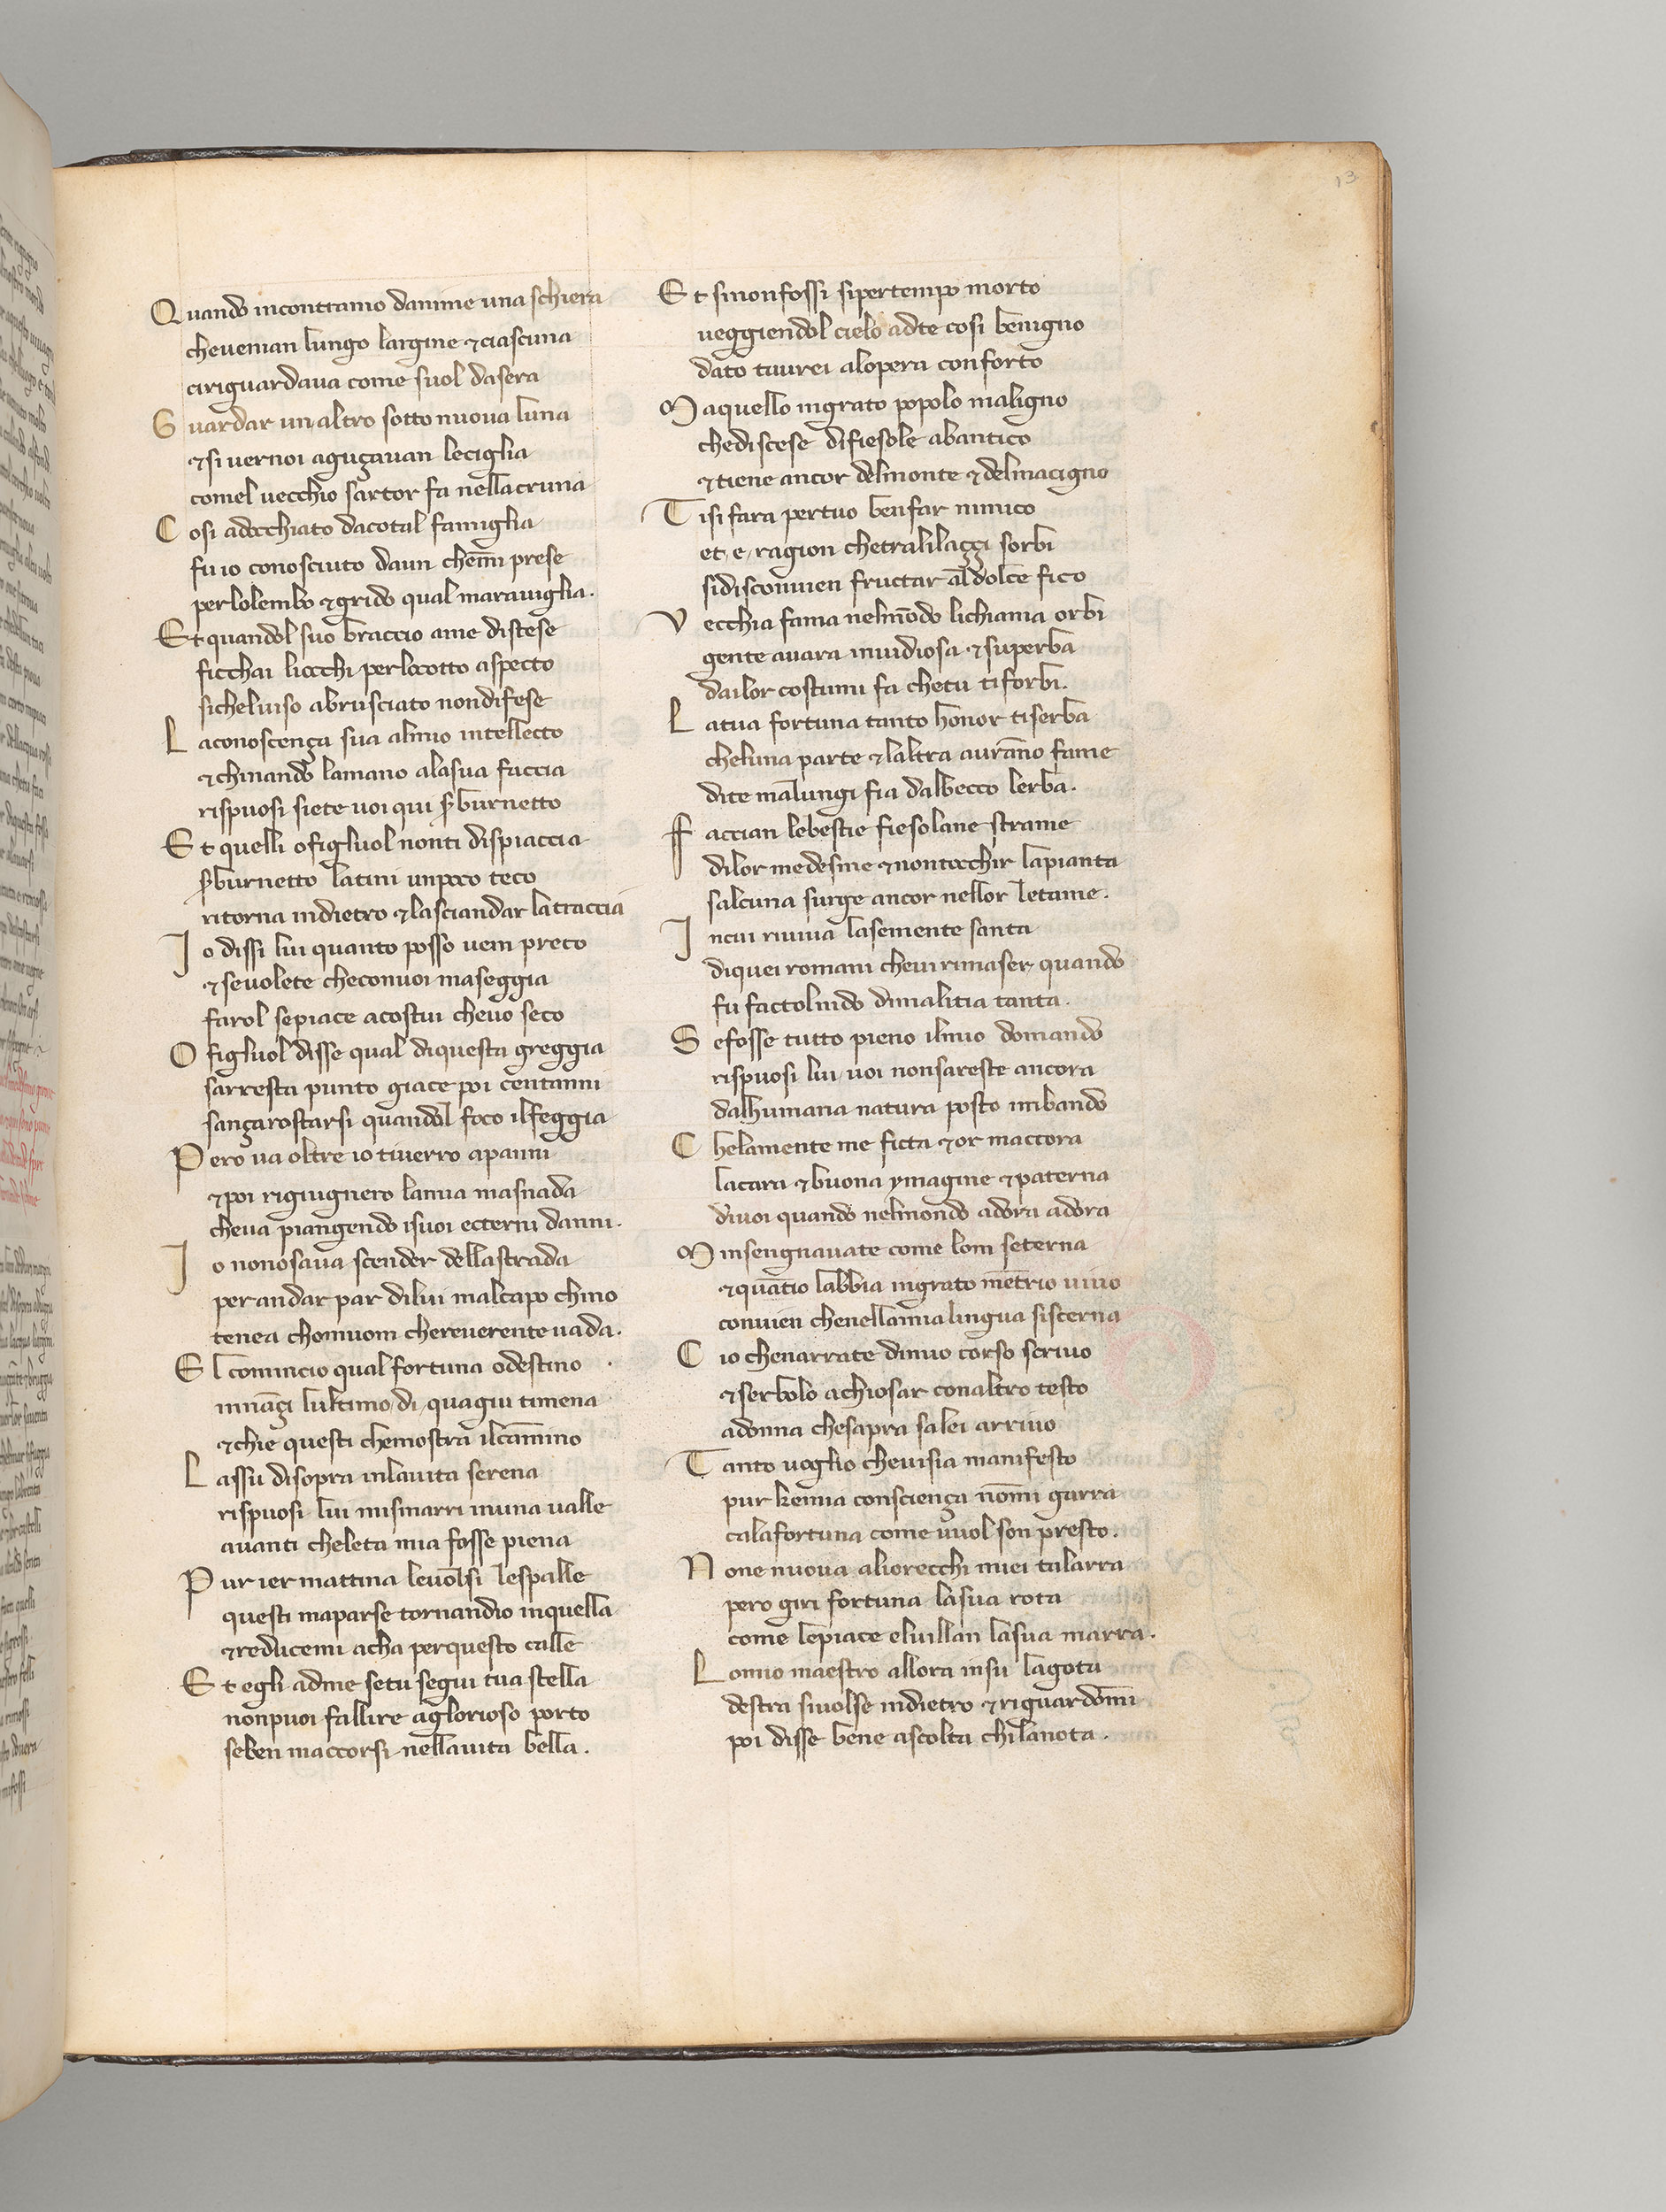 13
Quando incontramo danime una schiera
cheuenian lungo largine ⁊ciascuna
ciriguardaua come suol dasera
Guardar un altro sotto nuoua luna
⁊si uernoi aguçauan leciglia
comel uecchio sartor fa nellacruna
Cosi adocchiato dacotal famiglia
fu io conosciuto daun chem̄i prese
perlolembo ⁊grido qual marauiglia.
Et quandol suo braccio ame distese
ficchai liocchi perlocotto aspecto
sicheluiso abrusciato nondifese
Laconoscença sua almio intellecto
⁊chinando lamano alasua faccia
rispuosi siete uoi qui s̄burnetto
Et quelli o figliuol nonti dispiaccia
s̄burnetto latini unpoco teco
ritorna indietro ⁊lasciandar latraccia
Io dissi lui quanto posso uem preco
⁊seuolete checonuoi maseggia
farol sepiace acostui cheuo seco
O figliuol disse qual diquesta greggia
sarresta punto giace poi centanni
sançarostarsi quandol foco ilfeggia
Pero ua oltre io tiuerro apanni
⁊poi rigiugnero lamia masnada
cheua piangendo isuoi ecterni danni.
Io nonosaua scender dellastrada
per andar par dilui malcapo chino
tenea chomuom chereuerente uada.
El comincio qual fortuna odestino
innāçi lultimo di quagiu timena
⁊chie questi chemostra ilcāmino
Lassu disopra inlauita serena
rispuosi lui mismarri inuna ualle
auanti cheleta mia fosse piena
Pur ier mattina leuolsi lespalle
questi maparse tornandio inquella
⁊reducemi acha perquesto calle
Et egli adme setu segui tua stella
nonpuoi fallire aglorioso porto
seben maccorsi nellauita bella.
Et sinonfossi sipertempo morto
ueggiendol cielo adte cosi benigno
dato tiurei alopera conforto
Maquello ingrato popolo maligno
chediscese difiesole abantico
⁊tiene ancor delmonte ⁊delmacigno
Tisi fara pertuo benfar nimico
et e ragion chetralilaççi sorbi
sidisconuien fructar al dolce fico
Vecchia fama nelmōdo lichiama orbi
gente auara inuidiosa ⁊superba
dailor costumi fa chetu tiforbi.
Latua fortuna tanto honor tiserba
cheluna parte ⁊laltra aurāno fame
dite malungi fia dalbecco lerba.
Faccian lebestie fiesolane strame
dilor medesme ⁊nontocchir lapianta
salcuna surge ancor nellor letame.
Incui riuiua lasemente santa
diquei romani cheui rimaser quando
fu factolnido dimalitia tanta.
Sefosse tutto pieno ilmio domando
rispuosi lui uoi nonsareste ancora
dalhumana natura posto inbando
Chelamente me ficta ⁊or maccora
lacara ⁊buona ymagine ⁊paterna
diuoi quando nelmondo adora adora
Minsengnauate come lom seterna
⁊quātio labbia ingrato mētrio uiuo
conuien chenellamia lingua siscerna
Cio chenarrate dimio corso scriuo
⁊serbolo achiosar conaltro testo
adonna chesapra salei arriuo
Tanto uoglio cheuisia manifesto
pur kemia consciença nōmi garra
calafortuna come uuol son presto.
None nuoua aliorecchi miei talarra
pero giri fortuna lasua rota
come lepiace eluillan lasua marra.
Lomio maestro allora insu lagota
destra siuolse indietro ⁊riguardōmi
poi disse bene ascolta chilanota.